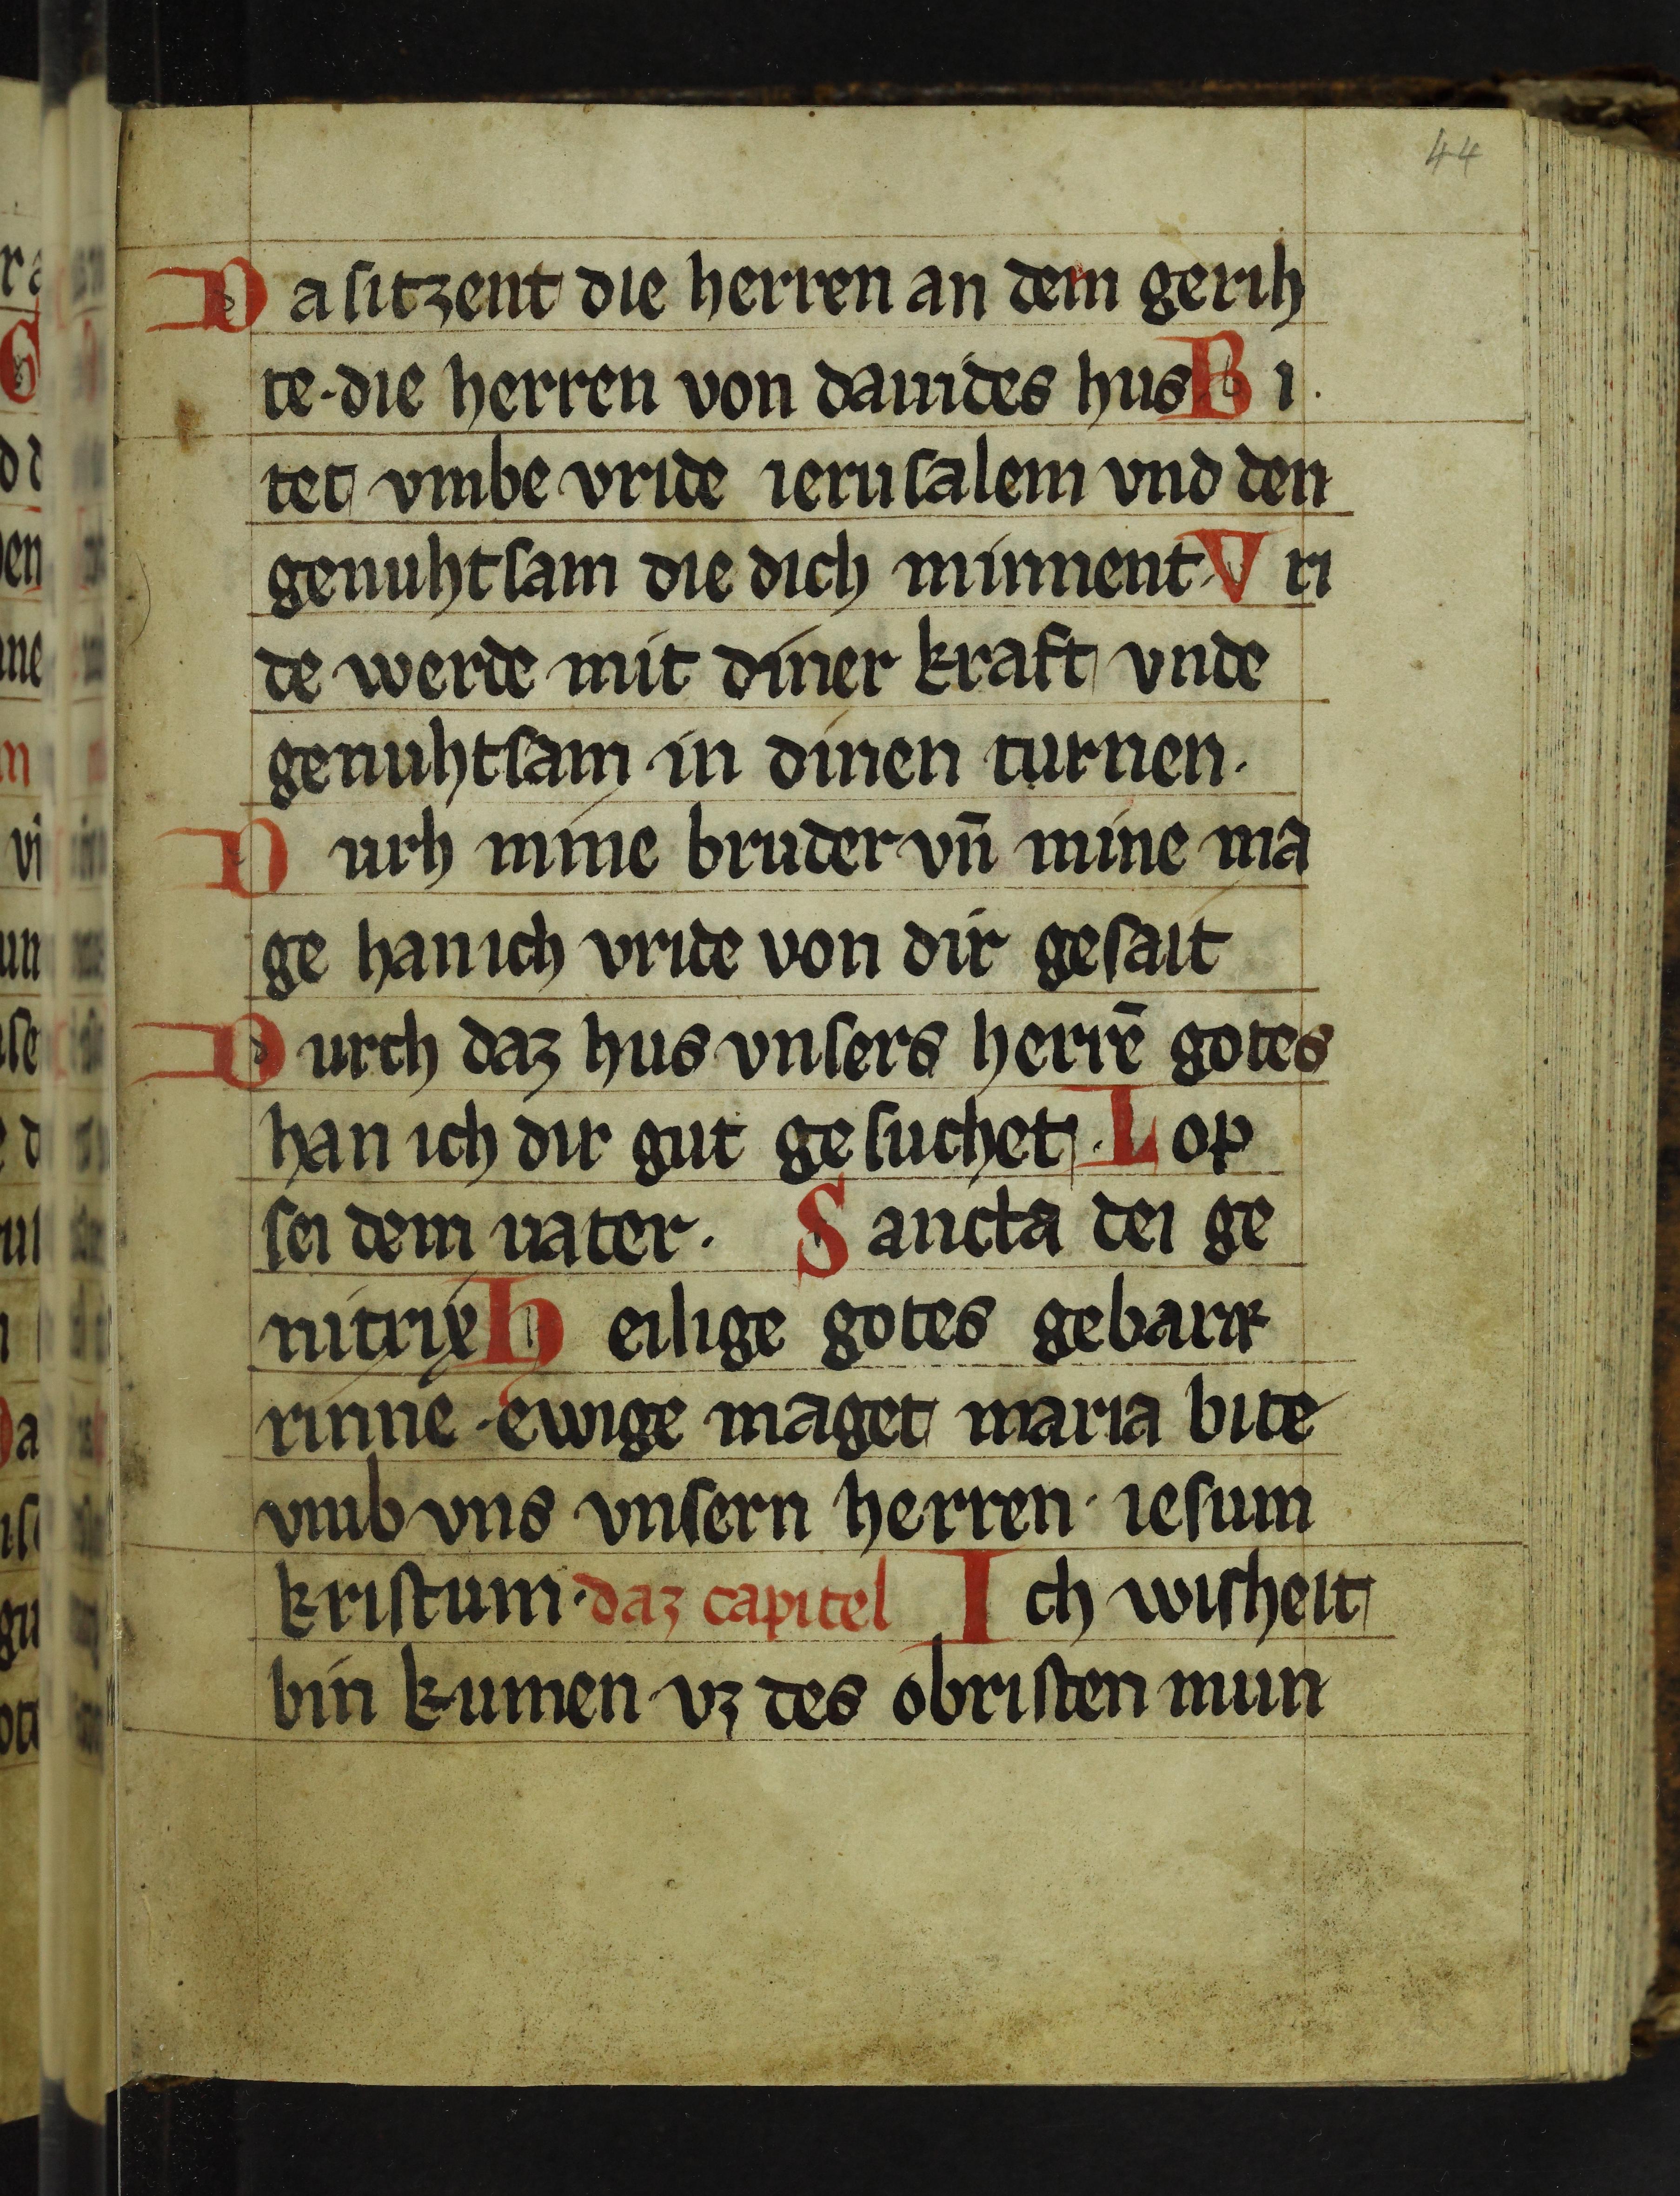 44
Da sitzent die herren an dem gerih
te·die herren von dauides hus Bi·
tet vmbe vride ierusalem vnd den
genuhtsam die dich minnent· Vri
de werde mit diner kraft vnde
genuhtsam in dinen turnen·
Durh mine bruder vn̄ mine ma
ge han ich vride von dir gesait
Durch daz hus vnsers herrē gotes
han ich dir gut gesuchet· Lop
sei dem uater· Sancta dei ge
nitrix Heilige gotes gebarr
rinne·ewige maget maria bite
vmb vns vnsern herren· iesum
kristum·daz capitel Ich wisheit
bin kumen vz des obristen mun